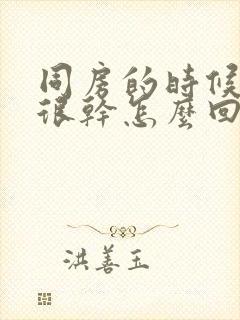 同房的時候
很幹怎麼回
洪善玉